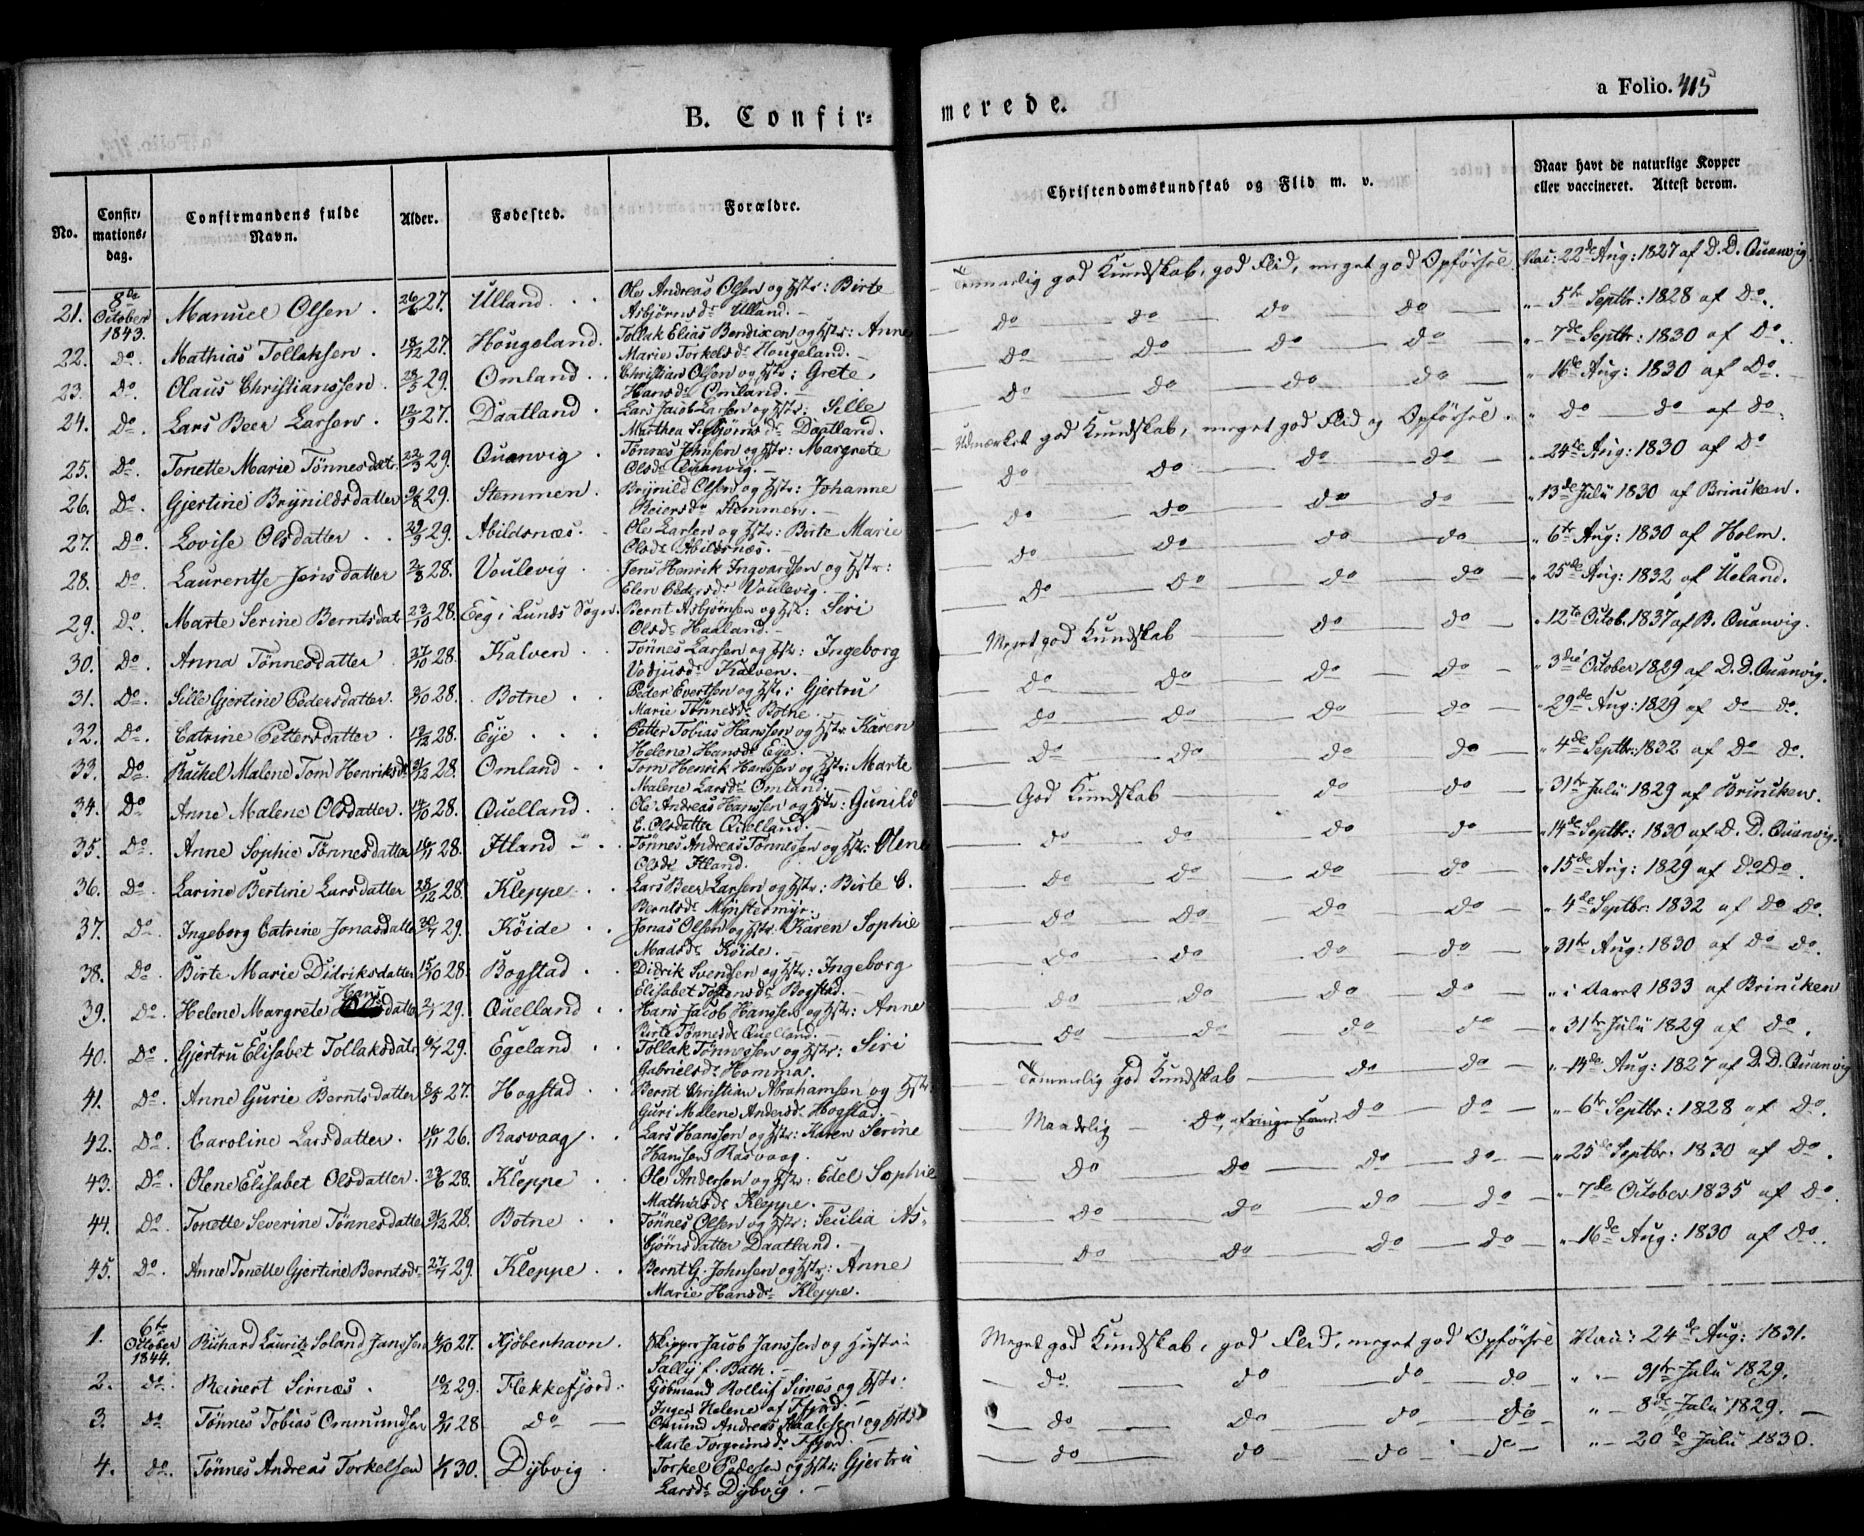 B. Confir=
merede.
a Folio. 415
No.
Confir=
mations=
dag.
Confirmandens fulde
Navn.
Alder.
Fødested.
Forældre.
Christendomskundskab og Flid m. v.
Naar havt de naturlige Kopper
eller vaccineret. Attest derom.
21. 8de October 1843. Manuel Olsen. 26/6 27. Ulland. Ole Andreas Olsen og Hstr: Birte
Asbjørnsdr Ulland.
Temmelig god Kundskab, god Flid, meget god Opførsel. Vac: 22de Aug: 1827 af D. D. Quanvig
22. Do. Mathias Tollaksen. 18/12 27. Hougeland. Tollak Elias Bendixen og Hstr: Anne
Marie Torkelsdr Hougeland.
Do Do Do Do " 5te Septbr: 1828 af Do.
23. Do. Olaus Christianssen. 29. Omland. Christian Olsen og Hstr: Grete
Hansdr Omland.
Do Do Do Do " 7de Septbr: 1830 af Do.
24. Do. Lars Beer Larsen. 12/9 27. Daatland. Lars Jacob Larsen og Hstr: Sille
Marthea Sigbjørnsdr Daatland.
Do Do Do Do " 16de Aug: 1830 af Do.
25. Do. Tonette Marie Tønnesdatr. 22/3 29. Quanvig. Tønnes Johnsen og Hstr: Margrete
Olsdr Quanvig.
Udmærket god Kundskab, meget god Flid og Opførsel. " Do Do af Do.
26. Do. Gjertine Brynildsdatter 9/8 29. Stemmen. Brynild Olsen og Hstr: Johanne
Reiersdr Stemmen.
Do Do Do Do " 24de Aug: 1830 af Do
27. Do. Lovise Olsdatter. 29. Abildsnæs. Ole Larsen og Hstr: Birte Marie
Olsdr Abildsnæs.
Do Do Do Do " 13de Julii 1830 af Brincken.
28. Do. Laurentse Jensdatter 28. Voulevig. Jens Henrik Ingvardsen og Hstr:
Elen Pedersdr Voulevig.
Do Do Do Do " 6te Aug: 1830 af Holm.
29. Do. Marte Serine Berntsdatr 23/10 28. Eeg i Lunds Sogn. Bernt Asbjørnsen og Hstr: Siri
Olsdr Haaland.
Do Do Do Do " 25de Aug: 1832 af Ueland.
30. Do. Anna Tønnesdatter 27/10 28. Kalven. Tønnes Larsen og Hstr: Ingeborg
Kalven.
Meget god Kundskab Do Do " 12te Octob. 1837 af B. Quanvig.
31. Do. Sille Gjertine Pedersdatter. 28. Botne. Peder Evertsen og Hstr: Gjertru
Marie Tønnesdr Bothe.
Do Do Do Do " 3die October 1829 af D. D. Quanvig.
32. Do. Catrine Pettersdatter. 28. Eije. Petter Tobias Hanssen og Hstr: Karen
Helene Hansdr Eije.
Do Do Do Do " 29de Aug: 1829 af do do.
33. Do. Rachel Malene Tom Henriksdr 28. Omland. Tom Henrik Hanssen og Hstr: Marte
Malene Larsdr Omland.
Do Do Do Do " 4de Septbr: 1832 af Do do.
34. Do Anne Malene Olsdatter. 28. Quelland. Ole Andreas Hanssen og Hstr: Gunild
E. Olsdatter Quelland.
God Kundskab Do Do " 31te Julii 1829 af Brincken.
35. Do. Anne Sophie Tønnesdatter 16/11 28. Itland. Tønnes Andreas Tønnessen og Hstr: Olene
Olsdr Itland.
Do Do Do Do " 14de Septbr: 1830 af D. D. Quanvig.
36. Do. Larine Bertine Larsdatter 28/12 28. Kleppe. Lars Beer Larsen og Hstr: Birte C.
Berntsdr Mynstermyr.
Do Do Do Do " 15de Aug: 1829 af Do Do.
37. Do. Ingeborg Catrine Jonasdatter 29. Køide. Jonas Olsen og Hstr: Karen Sophie
Madsdr Køide.
Do Do Do Do " 4de Septbr: 1832 af Do Do.
38. Do. Birte Marie Didriksdatter 15/10 28. Bogstad. Didrik Svendsen og Hstr: Ingeborg
Elisabet Tostensdr Bogstad.
Do Do Do Do " 31te Aug: 1830 af Do do.
39. Do. Helene Margrete Hansdatter 29. Quelland. Hans Jacob Hanssen og Hstr: Anne
Birte Tønnesdr Quelland.
Do Do Do Do " i Aaret 1833 af Brincken
40. Do. Gjertru Elisabet Tollaksdatr 29. Egeland. Tollak Tønnessen og Hstr: Siri
Gabrielsdr Hommar.
Do Do Do Do " 31te Julii 1829 af Do.
41. Do. Anne Gurie Berntsdatter 27. Hogstad. Bernt Christian Abrahamsen og Hstr
Guri Malene Andersdr Hogstad.
Temmelig God Kundskab Do Do " 14de Aug: 1827 af D. D. Quanvig
42. Do. Caroline Larsdatter. 16/11 26. Rasvaag. Lars Hanssen og Hstr: Karen Serine
Hansen Rasvaag.
Maadelig Do, af ringe Do Do " 6te Septbr: 1828 af Do.
43. Do. Olene Elisabet Olsdatter. 23/6 28. Kleppe. Ole Andersen og Hstr: Edel Sophie
Mathiasdr Kleppe.
Do Do Do Do " 25de Septbr: 1830 af Do.
44. Do. Tonette Severine Tønnesdatter 28. Botne. Tønnes Olsen og Hstr: Secilia As-
bjørnsdatter Daatland.
Do Do Do Do " 7de October 1835 af Do.
45. Do. Anne Tonette Gjertine Berntsdr 29. Kleppe. Bernt G. Johnsen og Hstr: Anne
Marie Hansdr Kleppe.
Do Do Do Do " 16de Aug: 1830 af Do.
1. 6te October 1844. Richard Lauritz Soland Janssen 27. Kjøbenhavn. Skipper Jacob Janssen og Hustru
Sally f. Bath.
Meget god Kundskab, god Flid, meget god Opførsel Vac: 24de Aug: 1831.
2. do. Reinert Sirnæs. 29. Flekkefjord. Kjøbmand Rolluf Sirnæs og Hstr:
Inger Helene af Ffjord.
do do do do " 31te Julii 1829.
3. do Tønnes Tobias Ommundsen 28 do Omund Andreas Haaksen og Hstr
Marte Torgrimsdr Ffjord.
do do do do " 8de Julii 1829.
4. do. Tønnes Andreas Torkelsen 30. Dybvig. Torkel Pedersen og Hstr: Gjertru
Larsdr Dybvig.
do do do do " 20de Julii 1830.